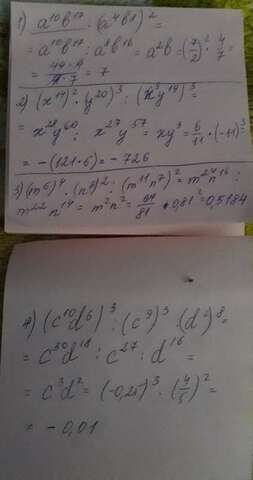 1) a¹⁰b¹⁷ : (a⁴b⁸)² =
= a¹⁰b¹⁷ : a⁸b¹⁶ = a²b = (7/2)² · 4/7 =
= 49·4/4·7 = 7
2) (x¹⁴)² · (y²⁰)³ : (x⁹y¹⁹)³ =
x²⁸y⁶⁰ : x²⁷y⁵⁷ = xy³ = 6/11 · (-11)³ =
= -(121·6) = -726
3) (m⁶)⁴ · (n⁸)² : (m¹¹n⁷)² = m²⁴n¹⁶ :
m²²n¹⁴ = m²n² = 64/81 · 0,81² = 0,5184
4) (c¹⁰d⁶)³ : (c⁹)³ · (d²)⁸ =
= c³⁰d¹⁸ : c²⁷ : d¹⁶ =
= c³d² = (-0,25)³ · (4/5)² =
= -0,01